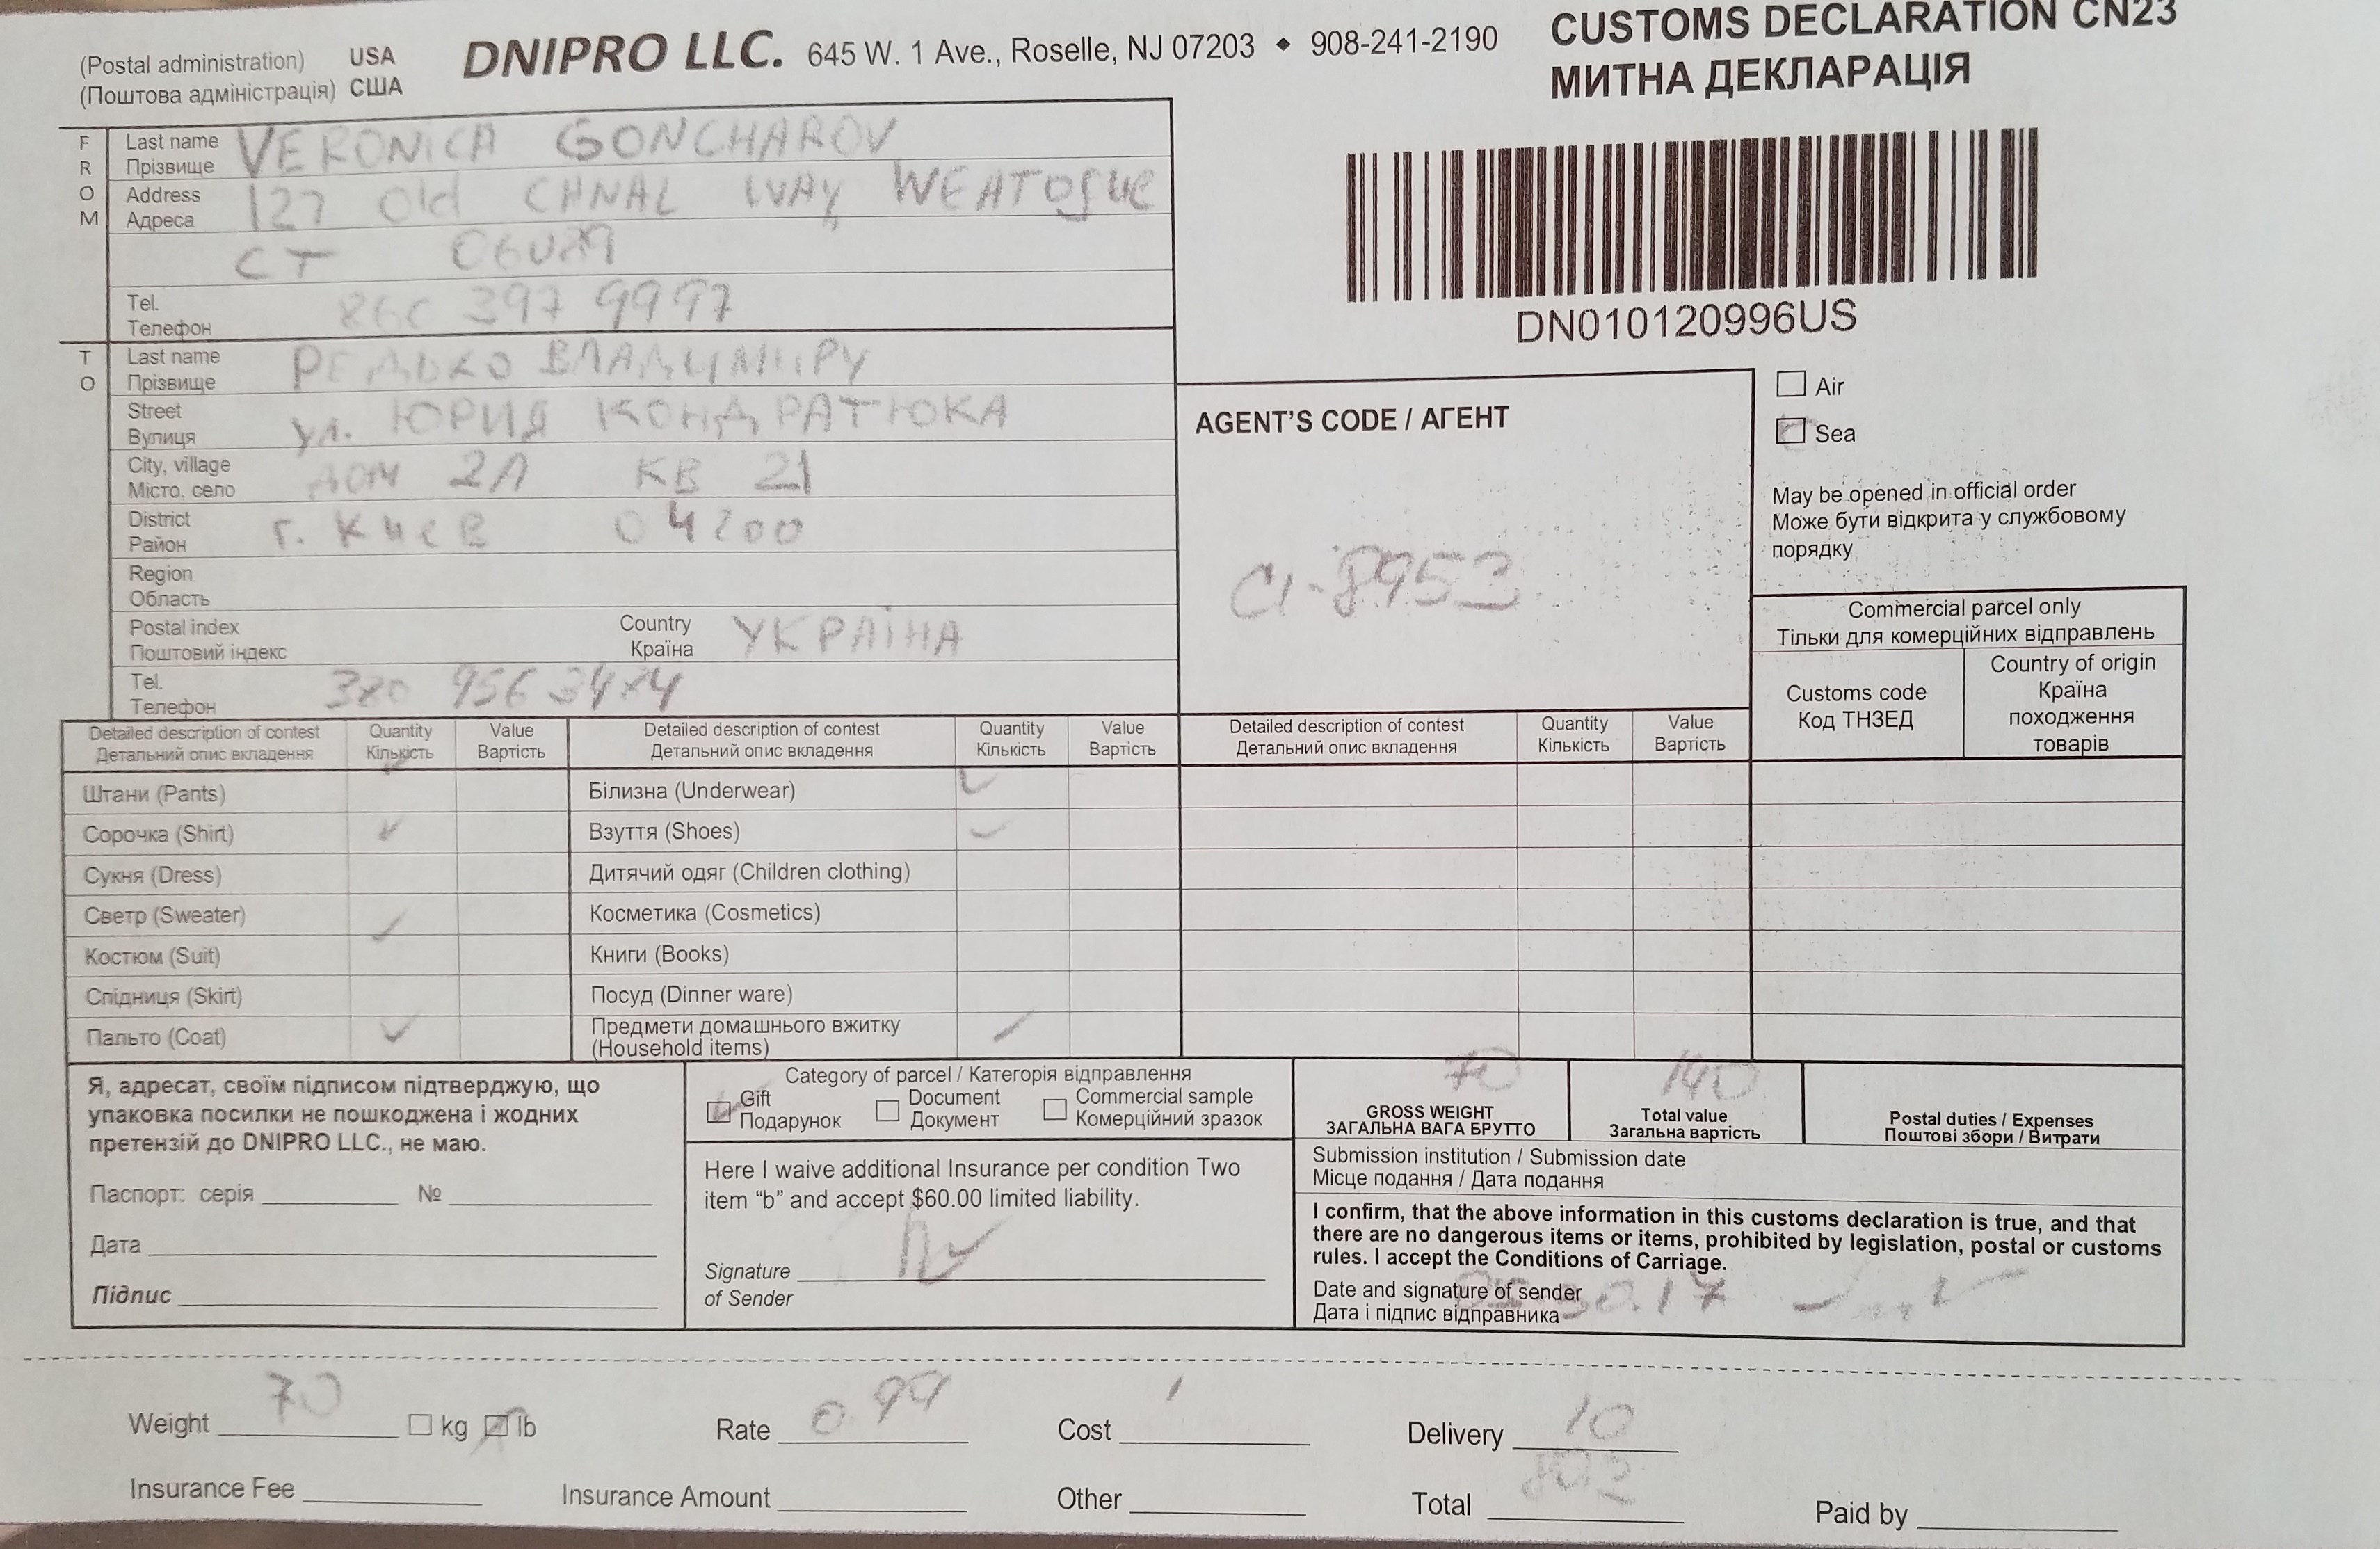 (Postal administration) USA
(Поштова адміністрація) США
DNIPRO LLC. 645 W. 1 Ave., Roselle, NJ 07203 ◆ 908-241-2190
CUSTOMS DECLARATION CN23
МИТНА ДЕКЛАРАЦІЯ
FROM
Last name VERONICA GONCHAROV
Прізвище
Address 127 Old CANAL WAY, WEATOGUE
Адреса
CT
Tel. 397 9997
Телефон
DN010120996US
TO
Last name РЕДЬКО ВЛАДИМИРУ
Прізвище
Street ул. ЮРИЯ КОНДРАТЮКА
Вулиця
City, village ДОМ КВ 21
Місто, село
District г. Киев 04200
Район
Region
Область
Postal index
Поштовий індекс
Country УКРАЇНА
Країна
Tel. 380 956
Телефон
AGENT'S CODE / АГЕНТ
CI-8953
Air
Sea
May be opened in official order
Може бути відкрита у службовому
порядку
Commercial parcel only
Тільки для комерційних відправлень
Customs code
Код ТНЗЕД
Country of origin
Країна
походження
товарів
Detailed description of contest Quantity Value Detailed description of contest Quantity Value Detailed description of contest Quantity Value
Детальний опис вкладення Кількість Вартість Детальний опис вкладення Кількість Вартість Детальний опис вкладення Кількість Вартість
Штани (Pants) Білизна (Underwear)
Сорочка (Shirt) Взуття (Shoes)
Сукня (Dress) Дитячий одяг (Children clothing)
Светр (Sweater) Косметика (Cosmetics)
Костюм (Suit) Книги (Books)
Спідниця (Skirt) Посуд (Dinner ware)
Пальто (Coat) Предмети домашнього вжитку
(Household items)
Я, адресат, своїм підписом підтверджую, що
упаковка посилки не пошкоджена і жодних
претензій до DNIPRO LLC., не маю.
Паспорт: серія №
Дата
Підпис
Category of parcel / Категорія відправлення
Gift Document Commercial sample
Подарунок Документ Комерційний зразок
Here I waive additional Insurance per condition Two
item “b” and accept $60.00 limited liability.
Signature
of Sender
70 140
GROSS WEIGHT Total value Postal duties / Expenses
ЗАГАЛЬНА ВАГА БРУТТО Загальна вартість Поштові збори / Витрати
Submission institution / Submission date
Місце подання / Дата подання
I confirm, that the above information in this customs declaration is true, and that
there are no dangerous items or items, prohibited by legislation, postal or customs
rules. I accept the Conditions of Carriage.
Date and signature of sender
Дата і підпис відправника
Weight 70 kg lb Rate 0.99 Cost Delivery 10
Insurance Fee Insurance Amount Other Total Paid by